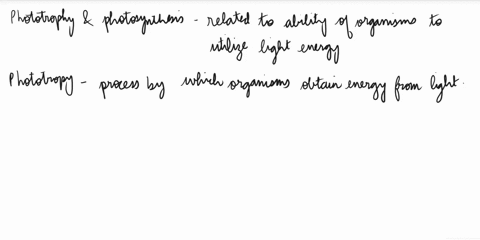 Phototrophy & photosynthesis - related to ability of organisms to
utilize light energy
Phototropy - process by which organisms obtain energy from light.